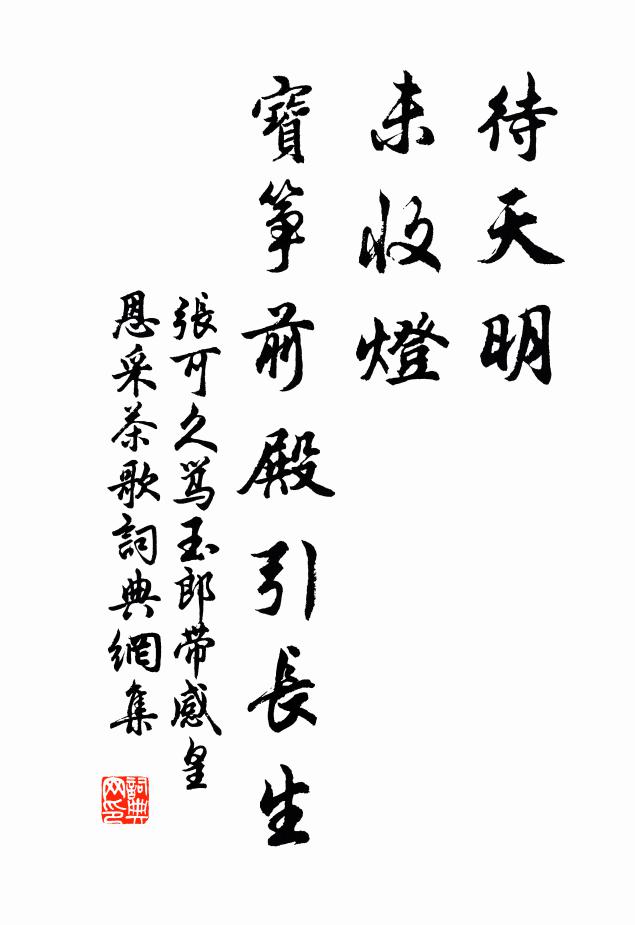 待天明
未收燈
寶箏前殿引長生
張可久罵玉郎帶感皇
恩采茶歌詞典網集
詞典
网印